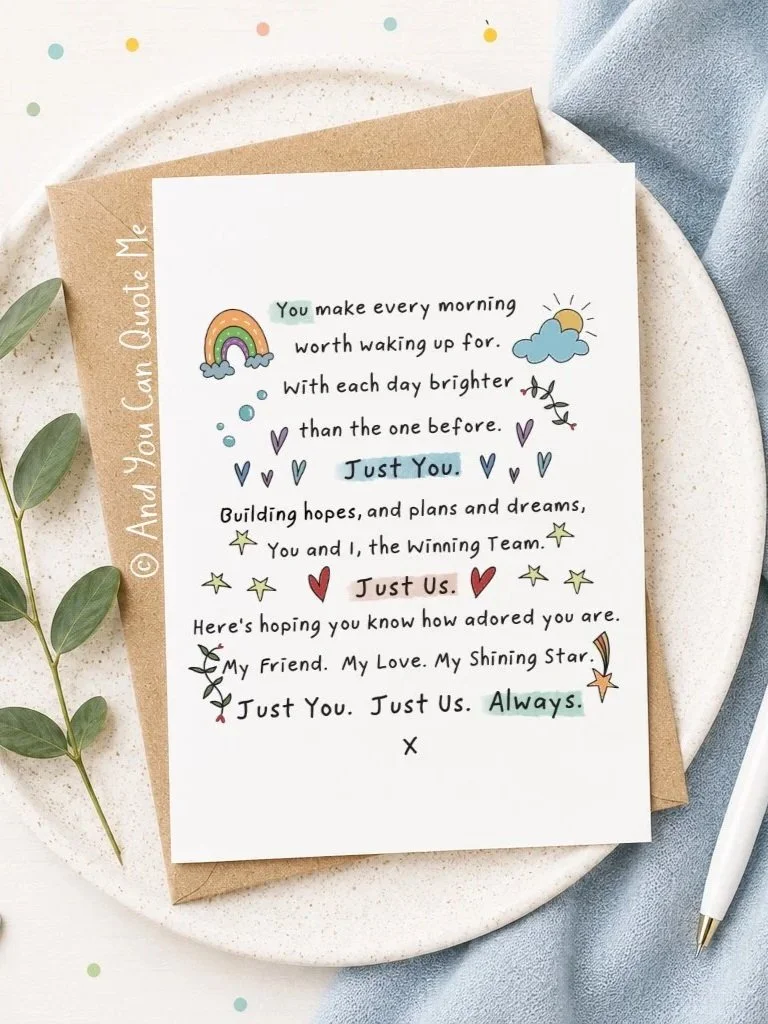 © And You Can Quote Me
You make every morning
worth waking up for.
With each day brighter
than the one before.
Just You.
Building hopes, and plans and dreams,
You and I, the Winning Team.
Just Us.
Here's hoping you know how adored you are.
My Friend. My Love. My Shining Star.
Just You. Just Us. Always.
X